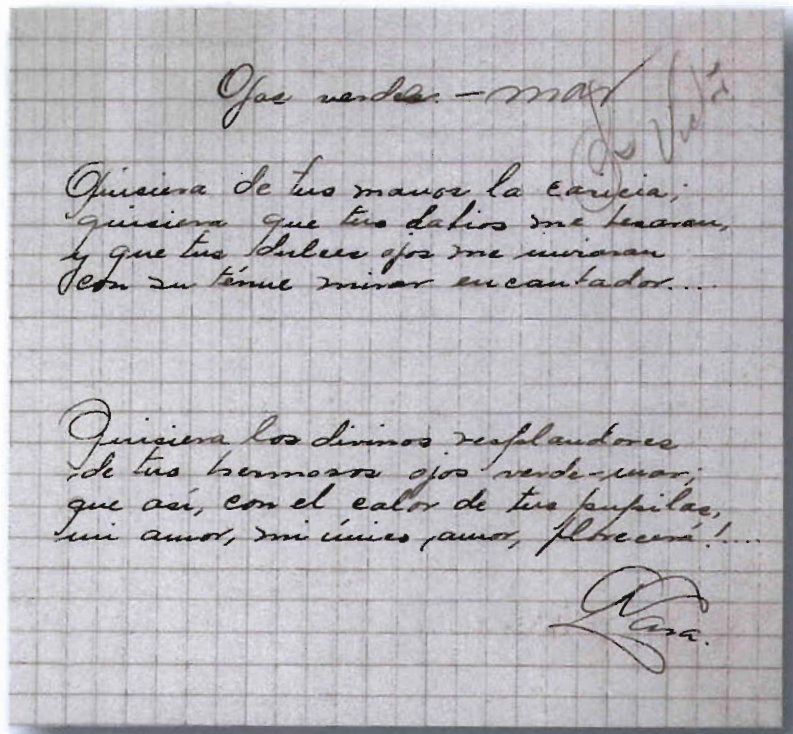 Ojos verdes - mar
Quisiera de tus manos la caricia;
quisiera que tus labios me besaran,
y que tus dulces ojos me miraran
con su ténue mirar encantador....
Quisiera los divinos resplandores
de tus hermosos ojos verde-mar;
que así, con el calor de tus pupilas,
mi amor, mi único amor, florecerá!....
Nara.